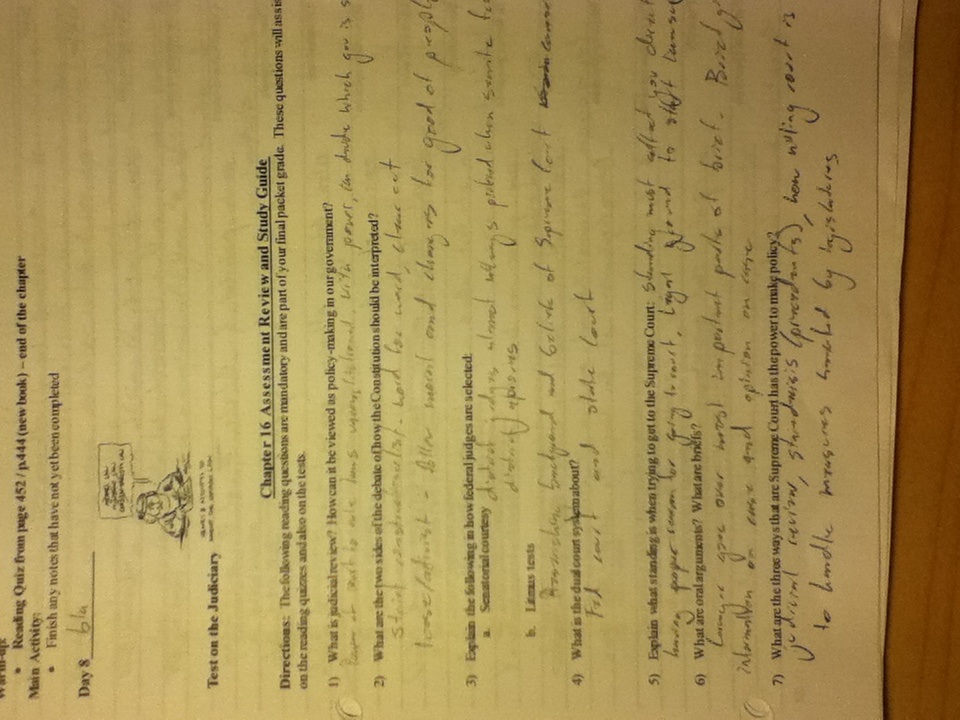 Warm-up:
• Reading Quiz from page 452 / p.444 (new book) – end of the chapter
Main Activity:
• Finish any notes that have not yet been completed
Day 8
Test on the Judiciary
Chapter 16 Assessment Review and Study Guide
Directions: The following reading questions are mandatory and are part of your final packet grade. These questions will assis
on the reading quizzes and also on the tests.
1) What is judicial review? How can it be viewed as policy-making in our government?
Power of court to rule laws unconstitutional. With power, can decide which gov is
2) What are the two sides of the debate of how the Constitution should be interpreted?
strict constructionalist - word for word, clear cut
loose/activist - follow moral and changes for good of people
3) Explain the following in how federal judges are selected:
a. Senatorial courtesy district judges almost always picked when senate
district approves
b. Litmus tests
background and beliefs of Supreme Court
4) What is the dual court system about?
Fed court and state court
5) Explain what standing is when trying to get to the Supreme Court: Standing must affect you direct
having proper reason for going to court, Legal ground to start lawsu
6) What are oral arguments? What are briefs?
Lawyer goes over most important parts of brief. Brief
information on case and opinion on case
7) What are the three ways that are Supreme Court has the power to make policy?
judicial review, (precedents), how willing court is
to handle measures enacted by legislatures